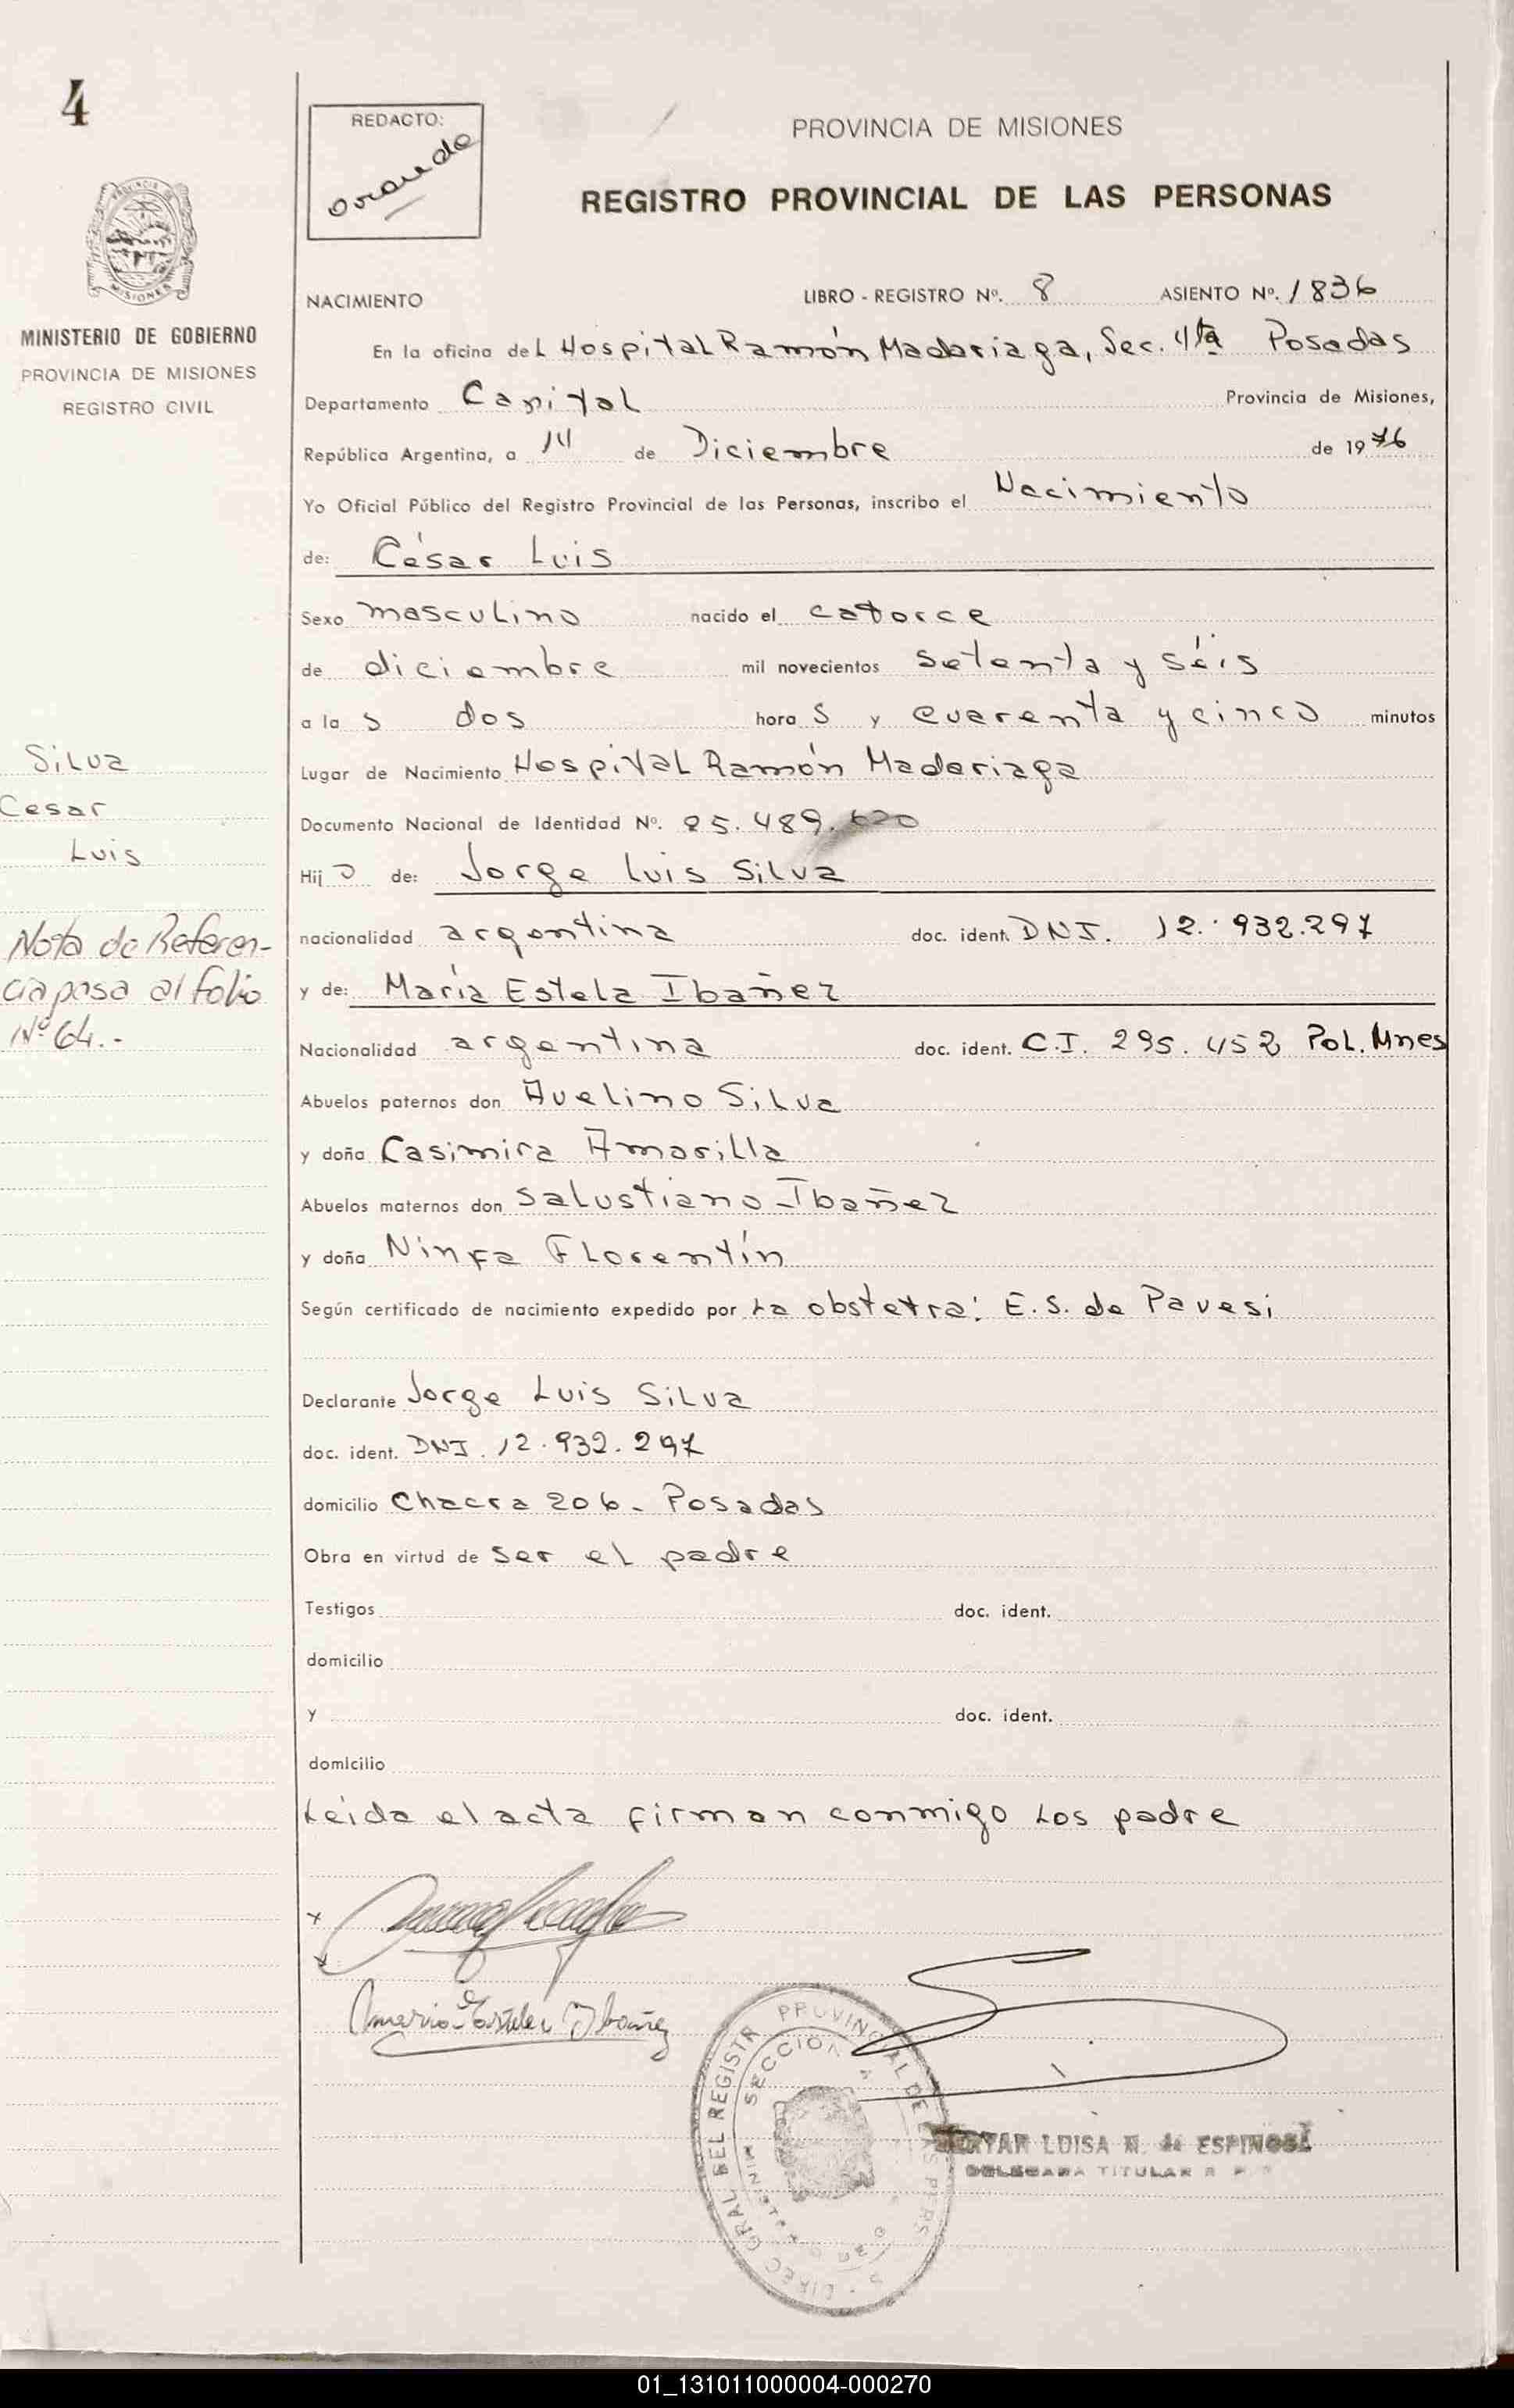 4
REDACTO:
PROVINCIA DE MISIONES
REGISTRO PROVINCIAL DE LAS PERSONAS
MINISTERIO DE GOBIERNO
PROVINCIA DE MISIONES
REGISTRO CIVIL
NACIMIENTO LIBRO - REGISTRO Nº. 8 ASIENTO Nº. 1836
En la oficina del Hospital Ramón Madariaga, Sec. 4ta Posadas
Departamento Capital Provincia de Misiones,
República Argentina, a 14 de Diciembre de 1976
Yo Oficial Público del Registro Provincial de las Personas, inscribo el Nacimiento
de: César Luis
Sexo masculino nacido el catorce
de diciembre mil novecientos setenta y séis
a las dos horas y cuarenta y cinco minutos
Lugar de Nacimiento Hospital Ramón Madariaga
Documento Nacional de Identidad Nº. 25.489.620
Hijo de: Jorge Luis Silva
nacionalidad argentina doc. ident. DNI. 12.932.297
y de: María Estela Ibañez
Nacionalidad argentina doc. ident. C.I. 295.452 Pol. Mnes
Abuelos paternos don Avelino Silva
y doña Casimira Amarilla
Abuelos maternos don Salustiano Ibañez
y doña Ninfa Florentín
Según certificado de nacimiento expedido por La obstetra: E.S. de Pavesi
Declarante Jorge Luis Silva
doc. ident. DNI. 12.932.297
domicilio Chacra 206 - Posadas
Obra en virtud de ser el padre
Testigos doc. ident.
domicilio
y doc. ident.
domicilio
Leida el acta firman conmigo Los padre
Silva
Cesar
Luis
Nota de Referen-
cia pasa al folio
Nº 64.-
Maria Estela Ibañez
DIREC GRAL DEL REGISTR PROVINCIAL DE LAS PERS
SECCION
LUISA M. de ESPINOSA
DELEGADA TITULAR R P
01_131011000004-000270